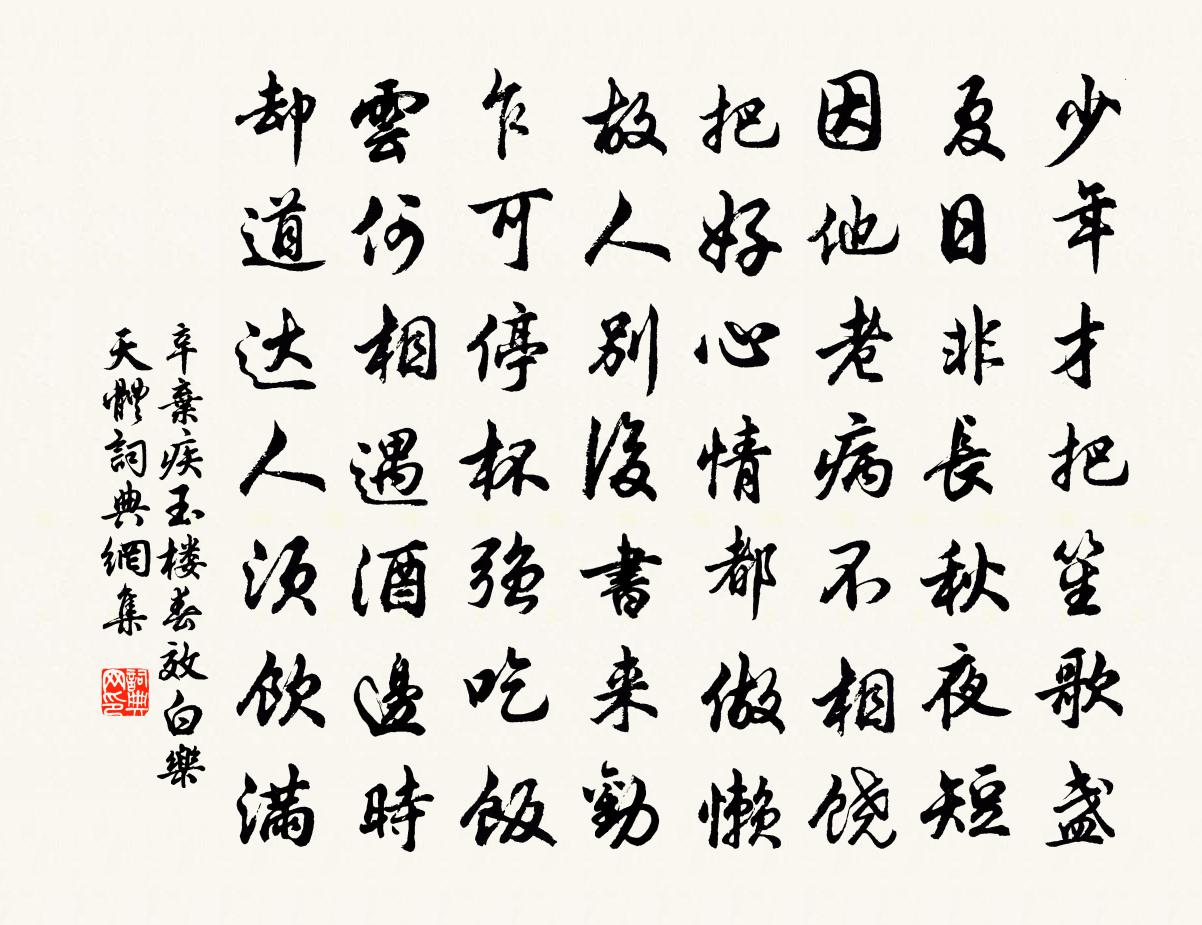 少年才把笙歌盏
夏日非長秋夜短
因他老病不相饶
把好心情都做懒
故人別後書来勸
乍可停杯強吃飯
雲何相遇酒邊時
却道达人须飲满
辛棄疾玉楼春放白樂
天體詞典網集
詞典网印